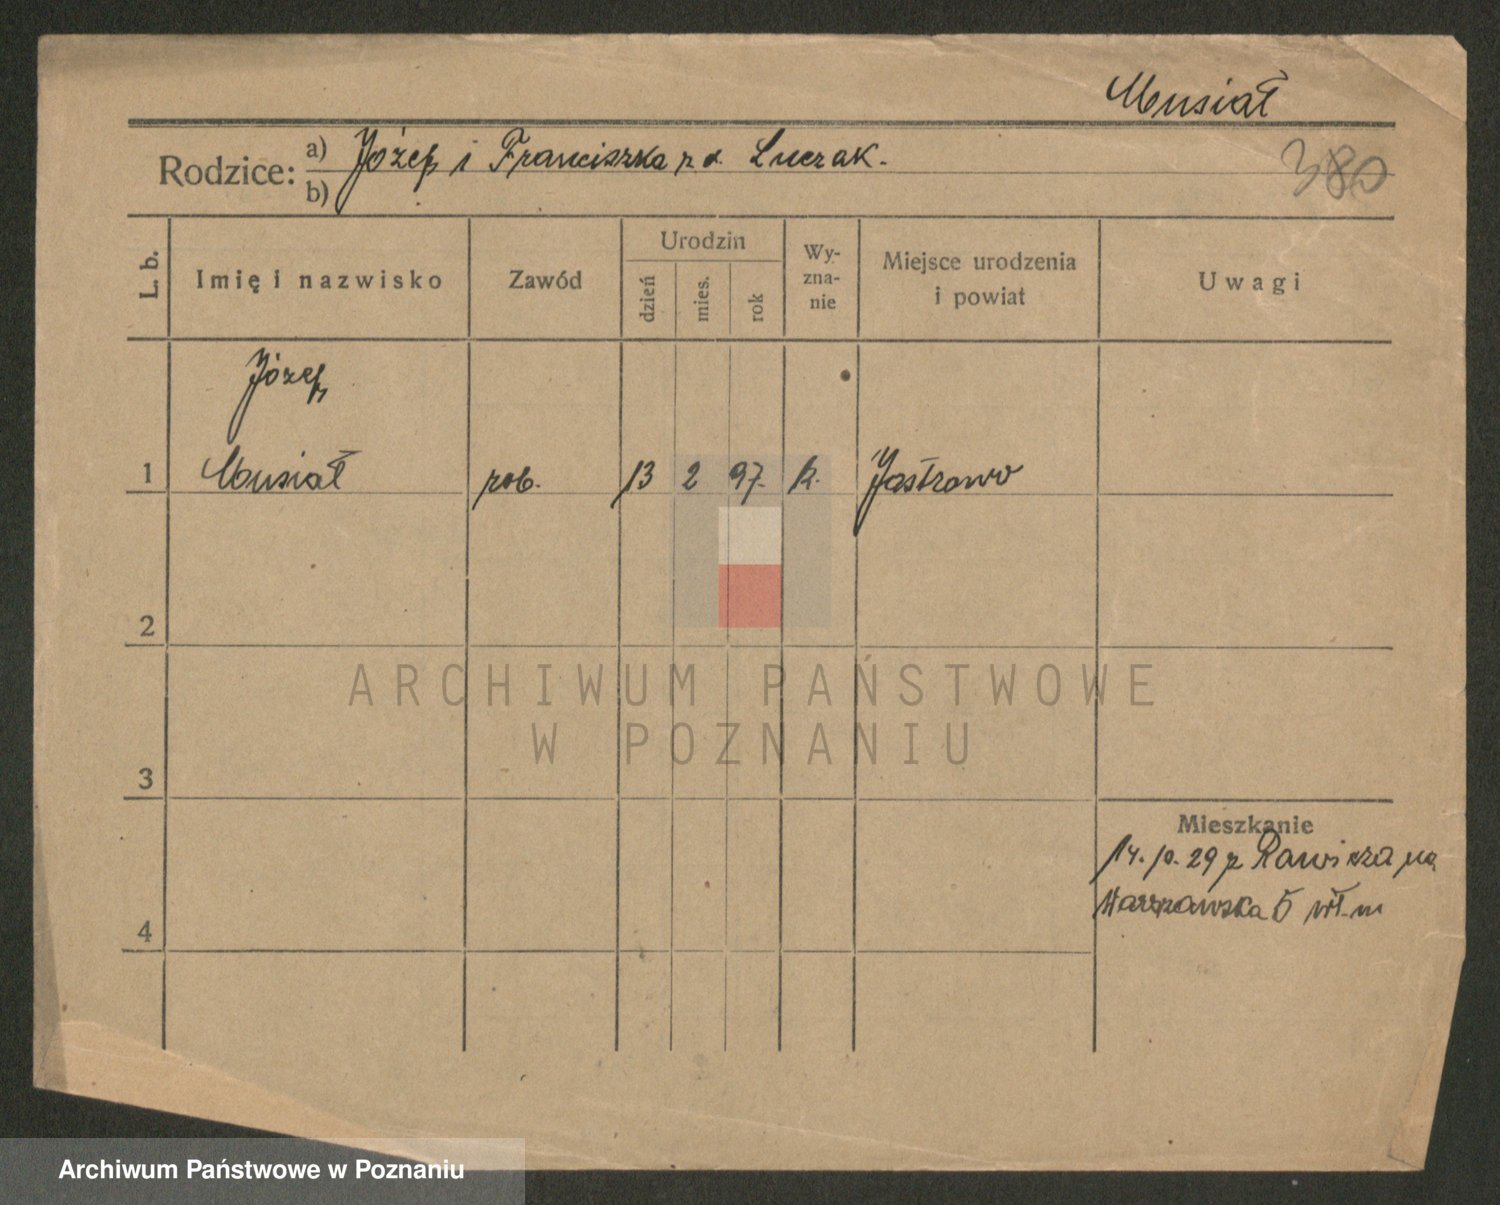 Musiał
Rodzice: a) Józef i Franciszka r. d. Luczak.
b)
380
L. b.
Imię i nazwisko
Zawód
Urodzin
dzień
mies.
rok
Wy-
zna-
nie
Miejsce urodzenia
i powiat
Uwagi
Józef
1 Musiał rob. 13 2 97. k. Jastrowo
2
ARCHIWUM PAŃSTWOWE
W POZNANIU
3
Mieszkanie
14. 10. 29 z Rawicza na
Warszawska 5 wł. m
4
Archiwum Państwowe w Poznaniu